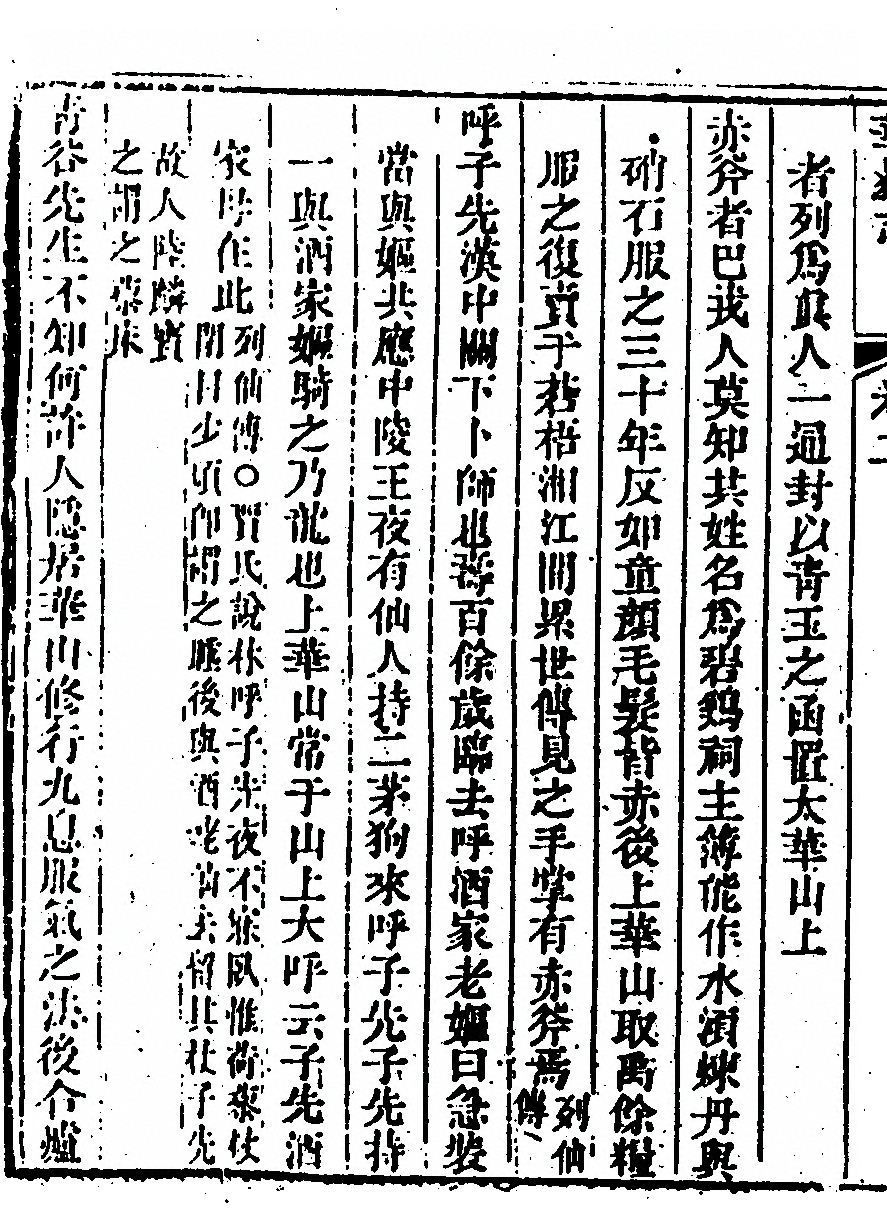 者列爲眞人一通封以靑玉之函置太華山上
赤斧者巴戎人莫知其姓名爲碧鷄祠主簿能作水澒煉丹與
硝石服之三十年反如童顏毛髮皆赤後上華山取禹餘糧
服之復賣于蒼梧湘江間累世傳見之手掌有赤斧焉列仙
傳
呼子先漢中關下卜師也壽百餘歲臨去呼酒家老嫗曰急裝
當與嫗共應中陵王夜有仙人持二茅狗來呼子先子先持
一與酒家嫗騎之乃龍也上華山常于山上大呼云子先酒
家母在此列仙傳○賈氏說林呼子先夜不寐臥惟荷葉仗
閉目少頃卽謂之睡後與酒老嫗去留其仗子先
故人陸麟寶
之謂之葉床
靑谷先生不知何許人隱居華山修行九息服氣之法後合爐